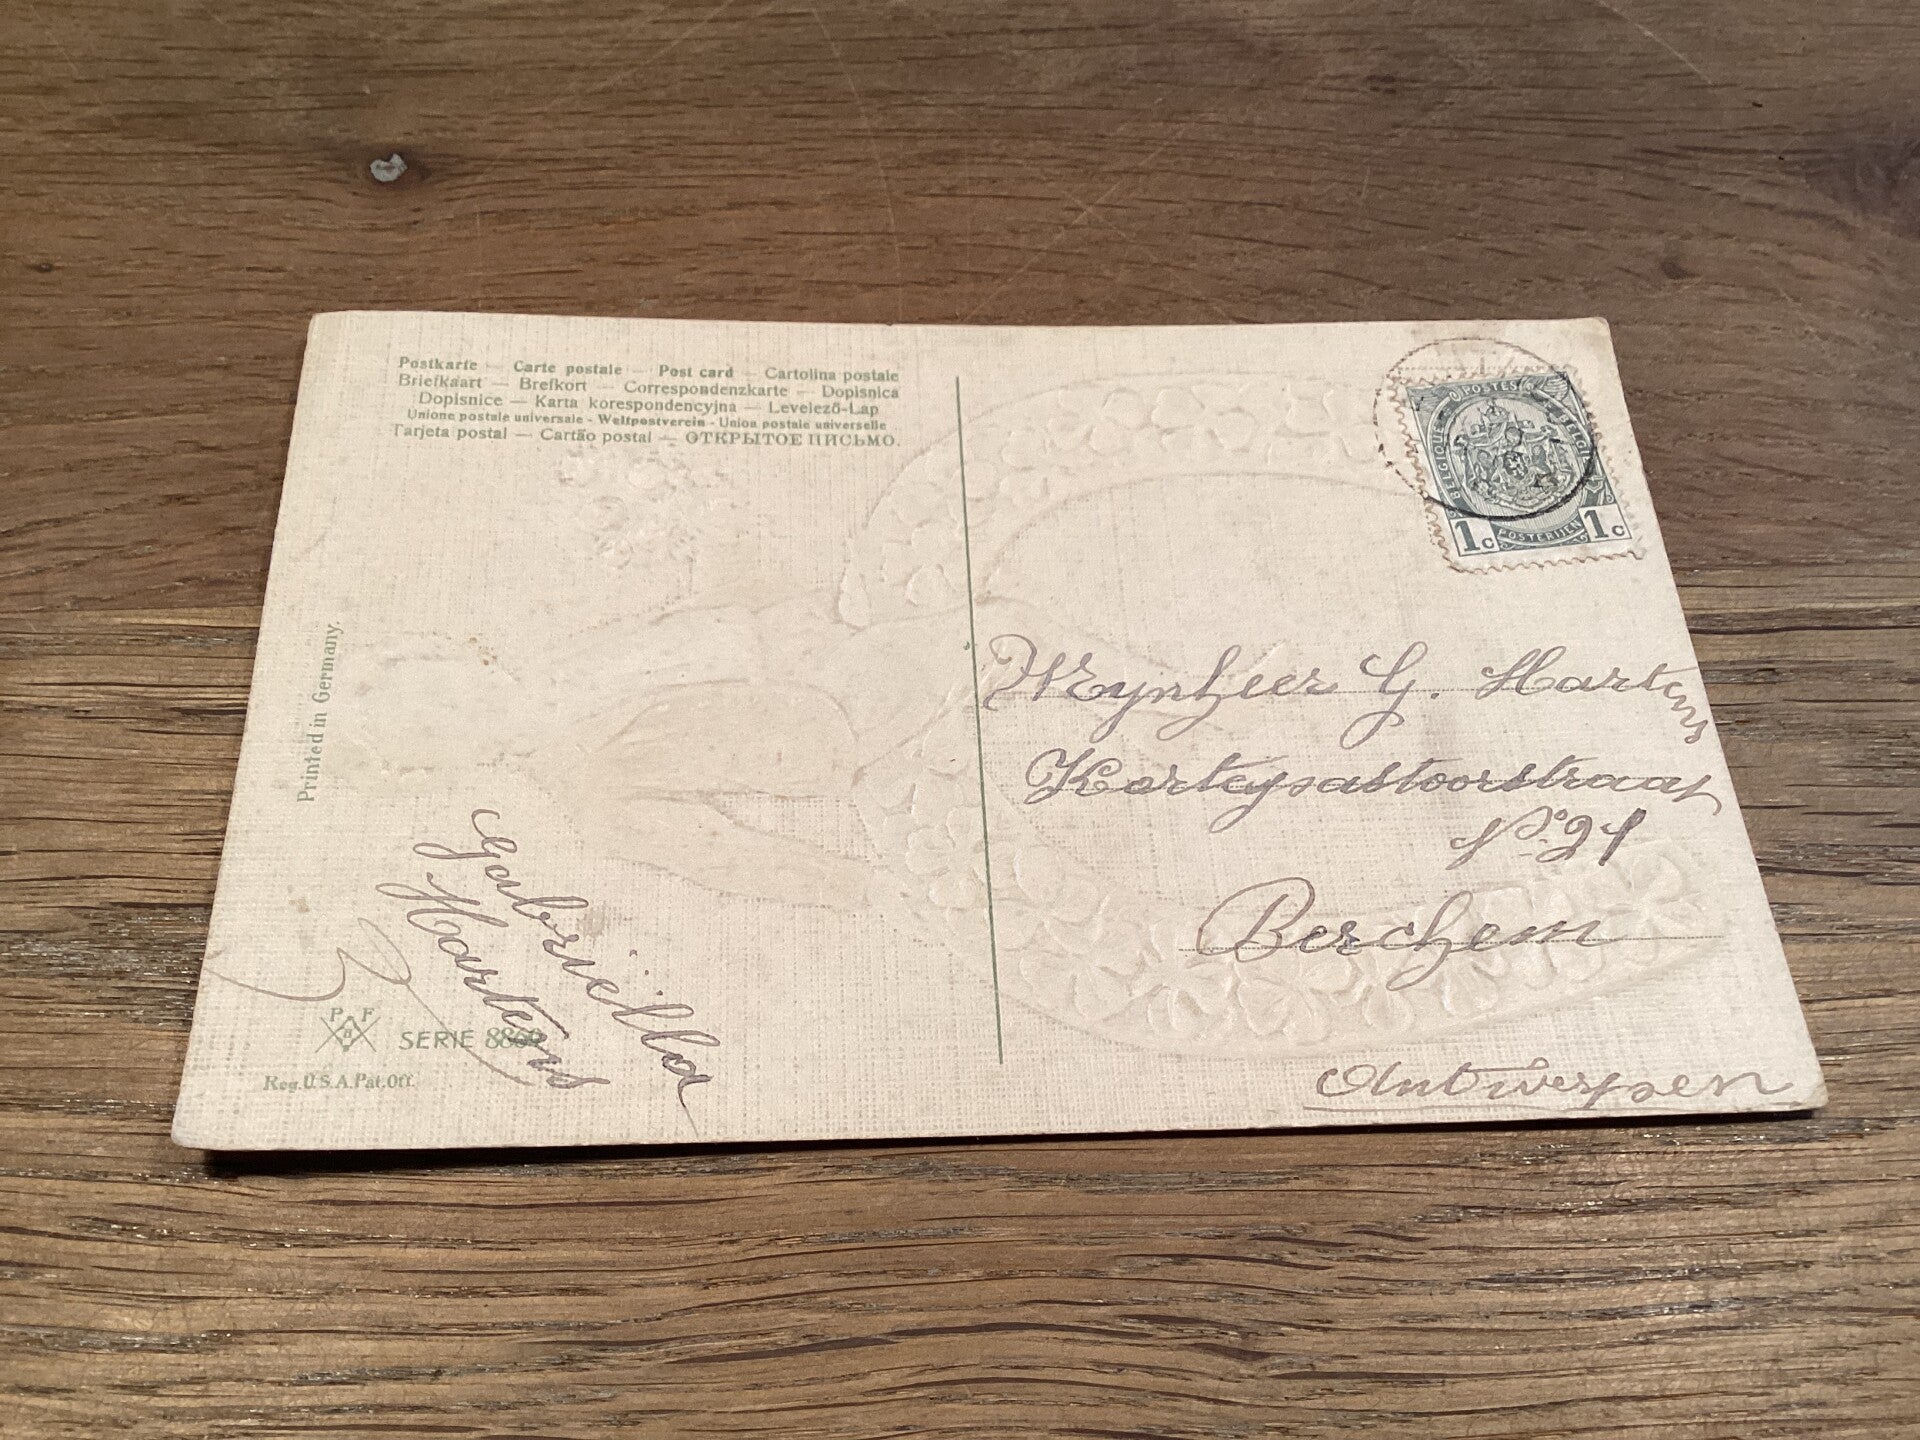 Postkarte — Carte postale — Post card — Cartolina postale
Briefkaart — Brefkort — Correspondenzkarte — Dopisnica
Dopisnice — Karta korespondencyjna — Levelező-Lap
Unione postale universale - Weltpostverein - Union postale universelle
Tarjeta postal — Cartão postal — ОТКРЫТОЕ ПИСЬМО.
Printed in Germany.
Gabriella
Martens
P F
B
SERIE 8869
Reg. U.S.A. Pat. Off.
BELGIQUE POSTES BELGIË
1c POSTERIJEN 1c
Mynheer G. Martens
No 91
Berchem
Antwerpen